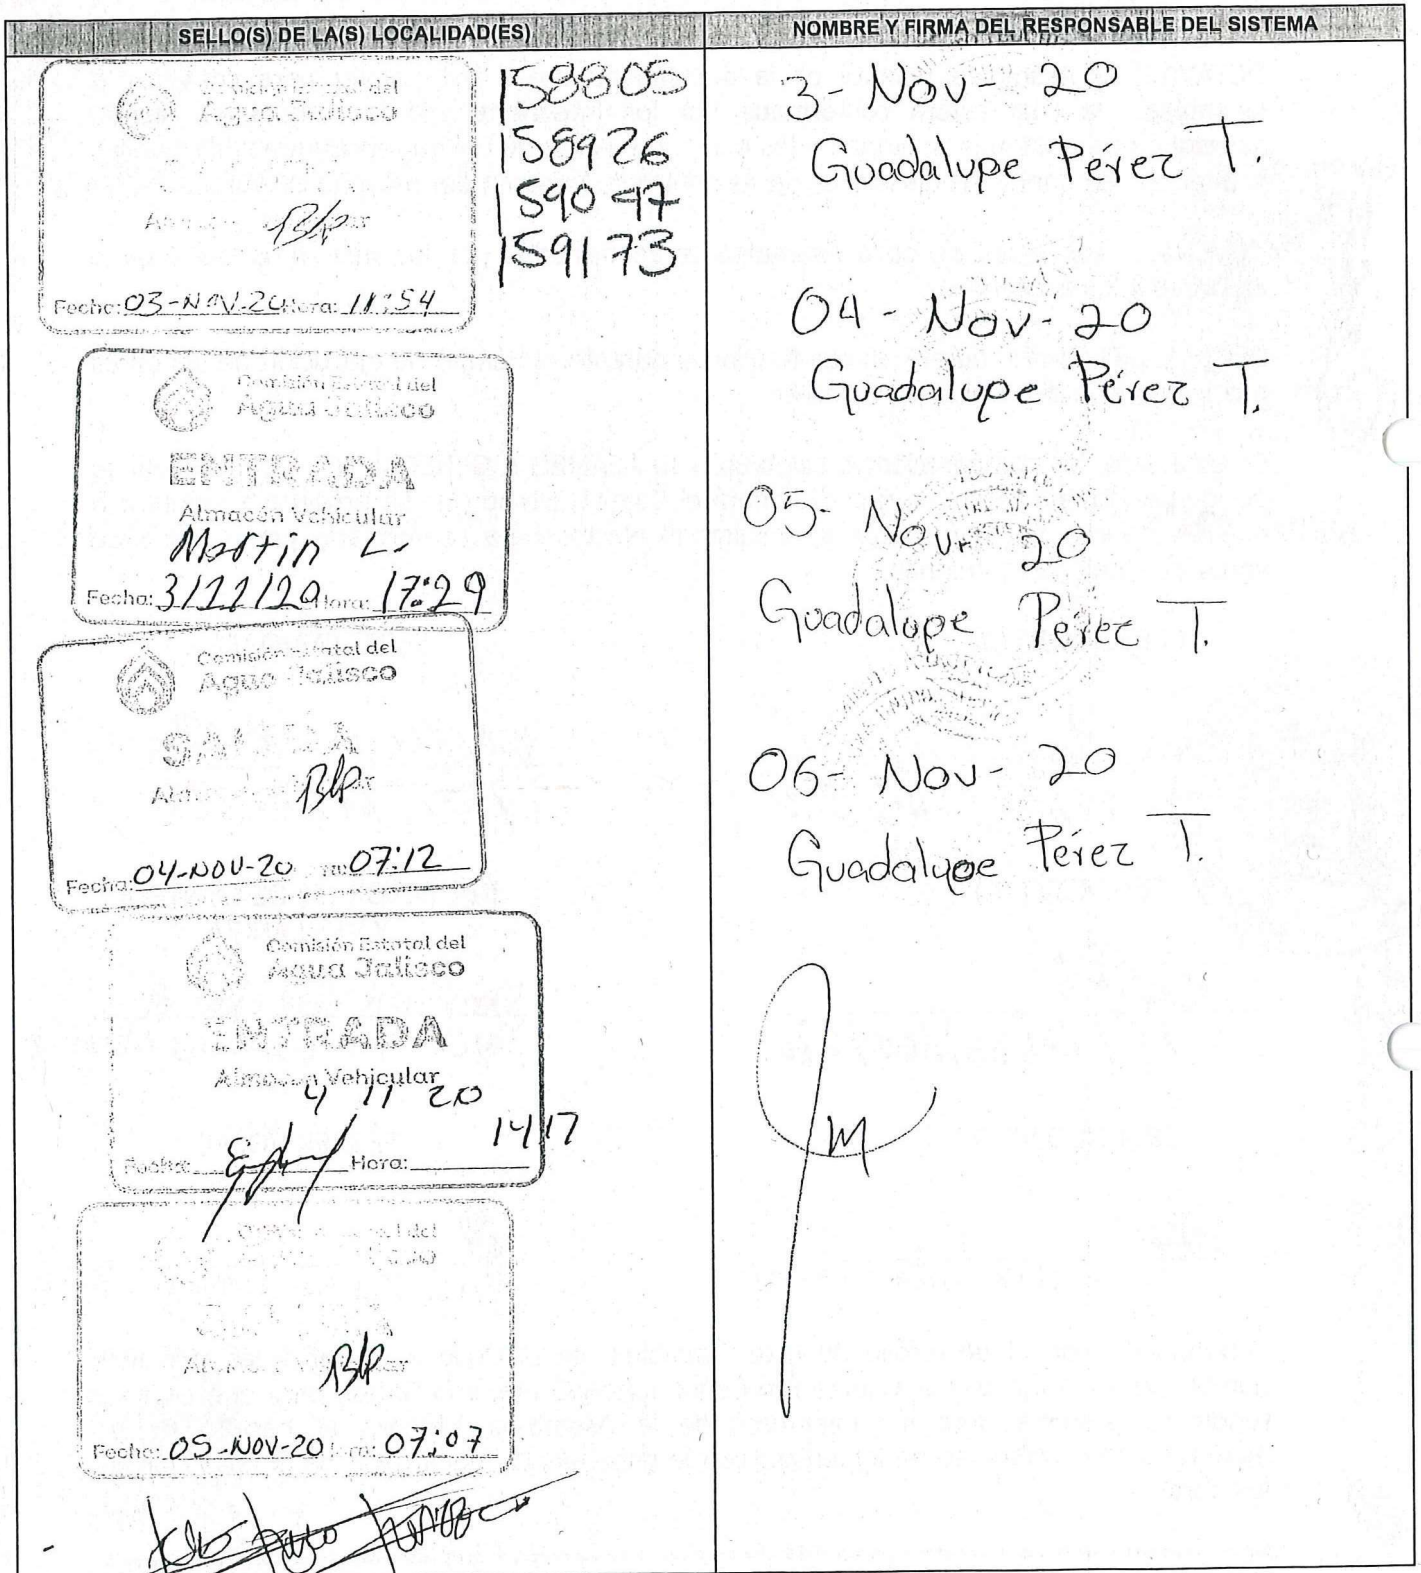 SELLO(S) DE LA(S) LOCALIDAD(ES)
Comisión Estatal del
Agua Jalisco
Fecha: 03-NOV-20 Hora: 11:54
158805
158926
159047
159173
Comisión Estatal del
Agua Jalisco
ENTRADA
Almacén Vehicular
Martin L.
Fecha: 3/11/20 Hora: 17:29
Comisión Estatal del
Agua Jalisco
SALIDA
Fecha: 04-NOV-20 07:12
Comisión Estatal del
Agua Jalisco
ENTRADA
Almacén Vehicular
4 11 20
1417
Fecha: Hora:
Fecha: 05-NOV-20 07:07
NOMBRE Y FIRMA DEL RESPONSABLE DEL SISTEMA
3-Nov-20
Guadalupe Pérez T.
04-Nov-20
Guadalupe Pérez T.
05-Nov-20
Guadalupe Pérez T.
06-Nov-20
Guadalupe Pérez T.